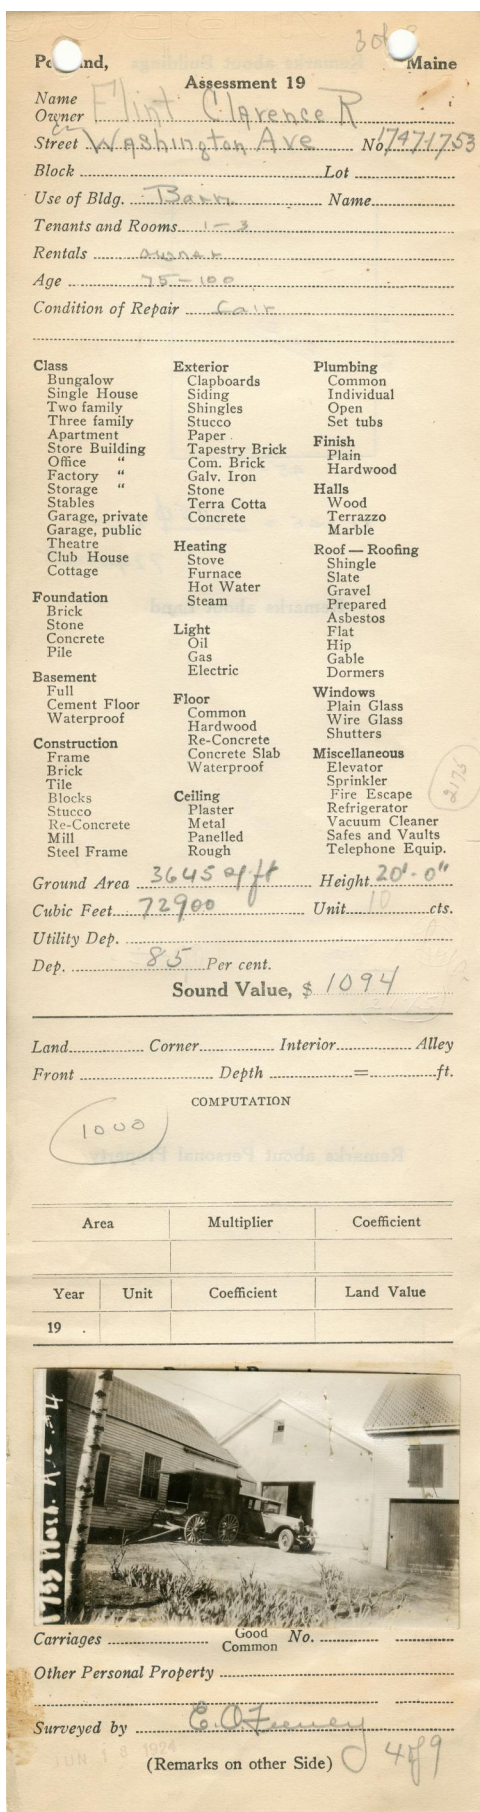 3 of
Portland, Maine
Assessment 19
Name
Owner Flint Clarence R
Street Washington Ave No. 1747-1753
Block Lot
Use of Bldg. Barn Name
Tenants and Rooms 1-3
Rentals owner
Age 75-100
Condition of Repair fair
Class
Bungalow
Single House
Two family
Three family
Apartment
Store Building
Office "
Factory "
Storage "
Stables
Garage, private
Garage, public
Theatre
Club House
Cottage
Foundation
Brick
Stone
Concrete
Pile
Basement
Full
Cement Floor
Waterproof
Construction
Frame
Brick
Tile
Blocks
Stucco
Re-Concrete
Mill
Steel Frame
Exterior
Clapboards
Siding
Shingles
Stucco
Paper
Tapestry Brick
Com. Brick
Galv. Iron
Stone
Terra Cotta
Concrete
Heating
Stove
Furnace
Hot Water
Steam
Light
Oil
Gas
Electric
Floor
Common
Hardwood
Re-Concrete
Concrete Slab
Waterproof
Ceiling
Plaster
Metal
Panelled
Rough
Plumbing
Common
Individual
Open
Set tubs
Finish
Plain
Hardwood
Halls
Wood
Terrazzo
Marble
Roof — Roofing
Shingle
Slate
Gravel
Prepared
Asbestos
Flat
Hip
Gable
Dormers
Windows
Plain Glass
Wire Glass
Shutters
Miscellaneous
Elevator
Sprinkler
Fire Escape
Refrigerator
Vacuum Cleaner
Safes and Vaults
Telephone Equip.
2175
Ground Area 3645 sq ft Height 20'-0"
Cubic Feet 72900 Unit 10 cts.
Utility Dep.
Dep. 85 Per cent.
Sound Value, $ 1094
Land Corner Interior Alley
Front Depth = ft.
COMPUTATION
1000
Area Multiplier Coefficient
Year Unit Coefficient Land Value
19
1753 Wash. Ave. #4
Carriages Good Common No.
Other Personal Property
Surveyed by E. O. Feeney
JUN 18 1924
(Remarks on other Side) 4 of 9